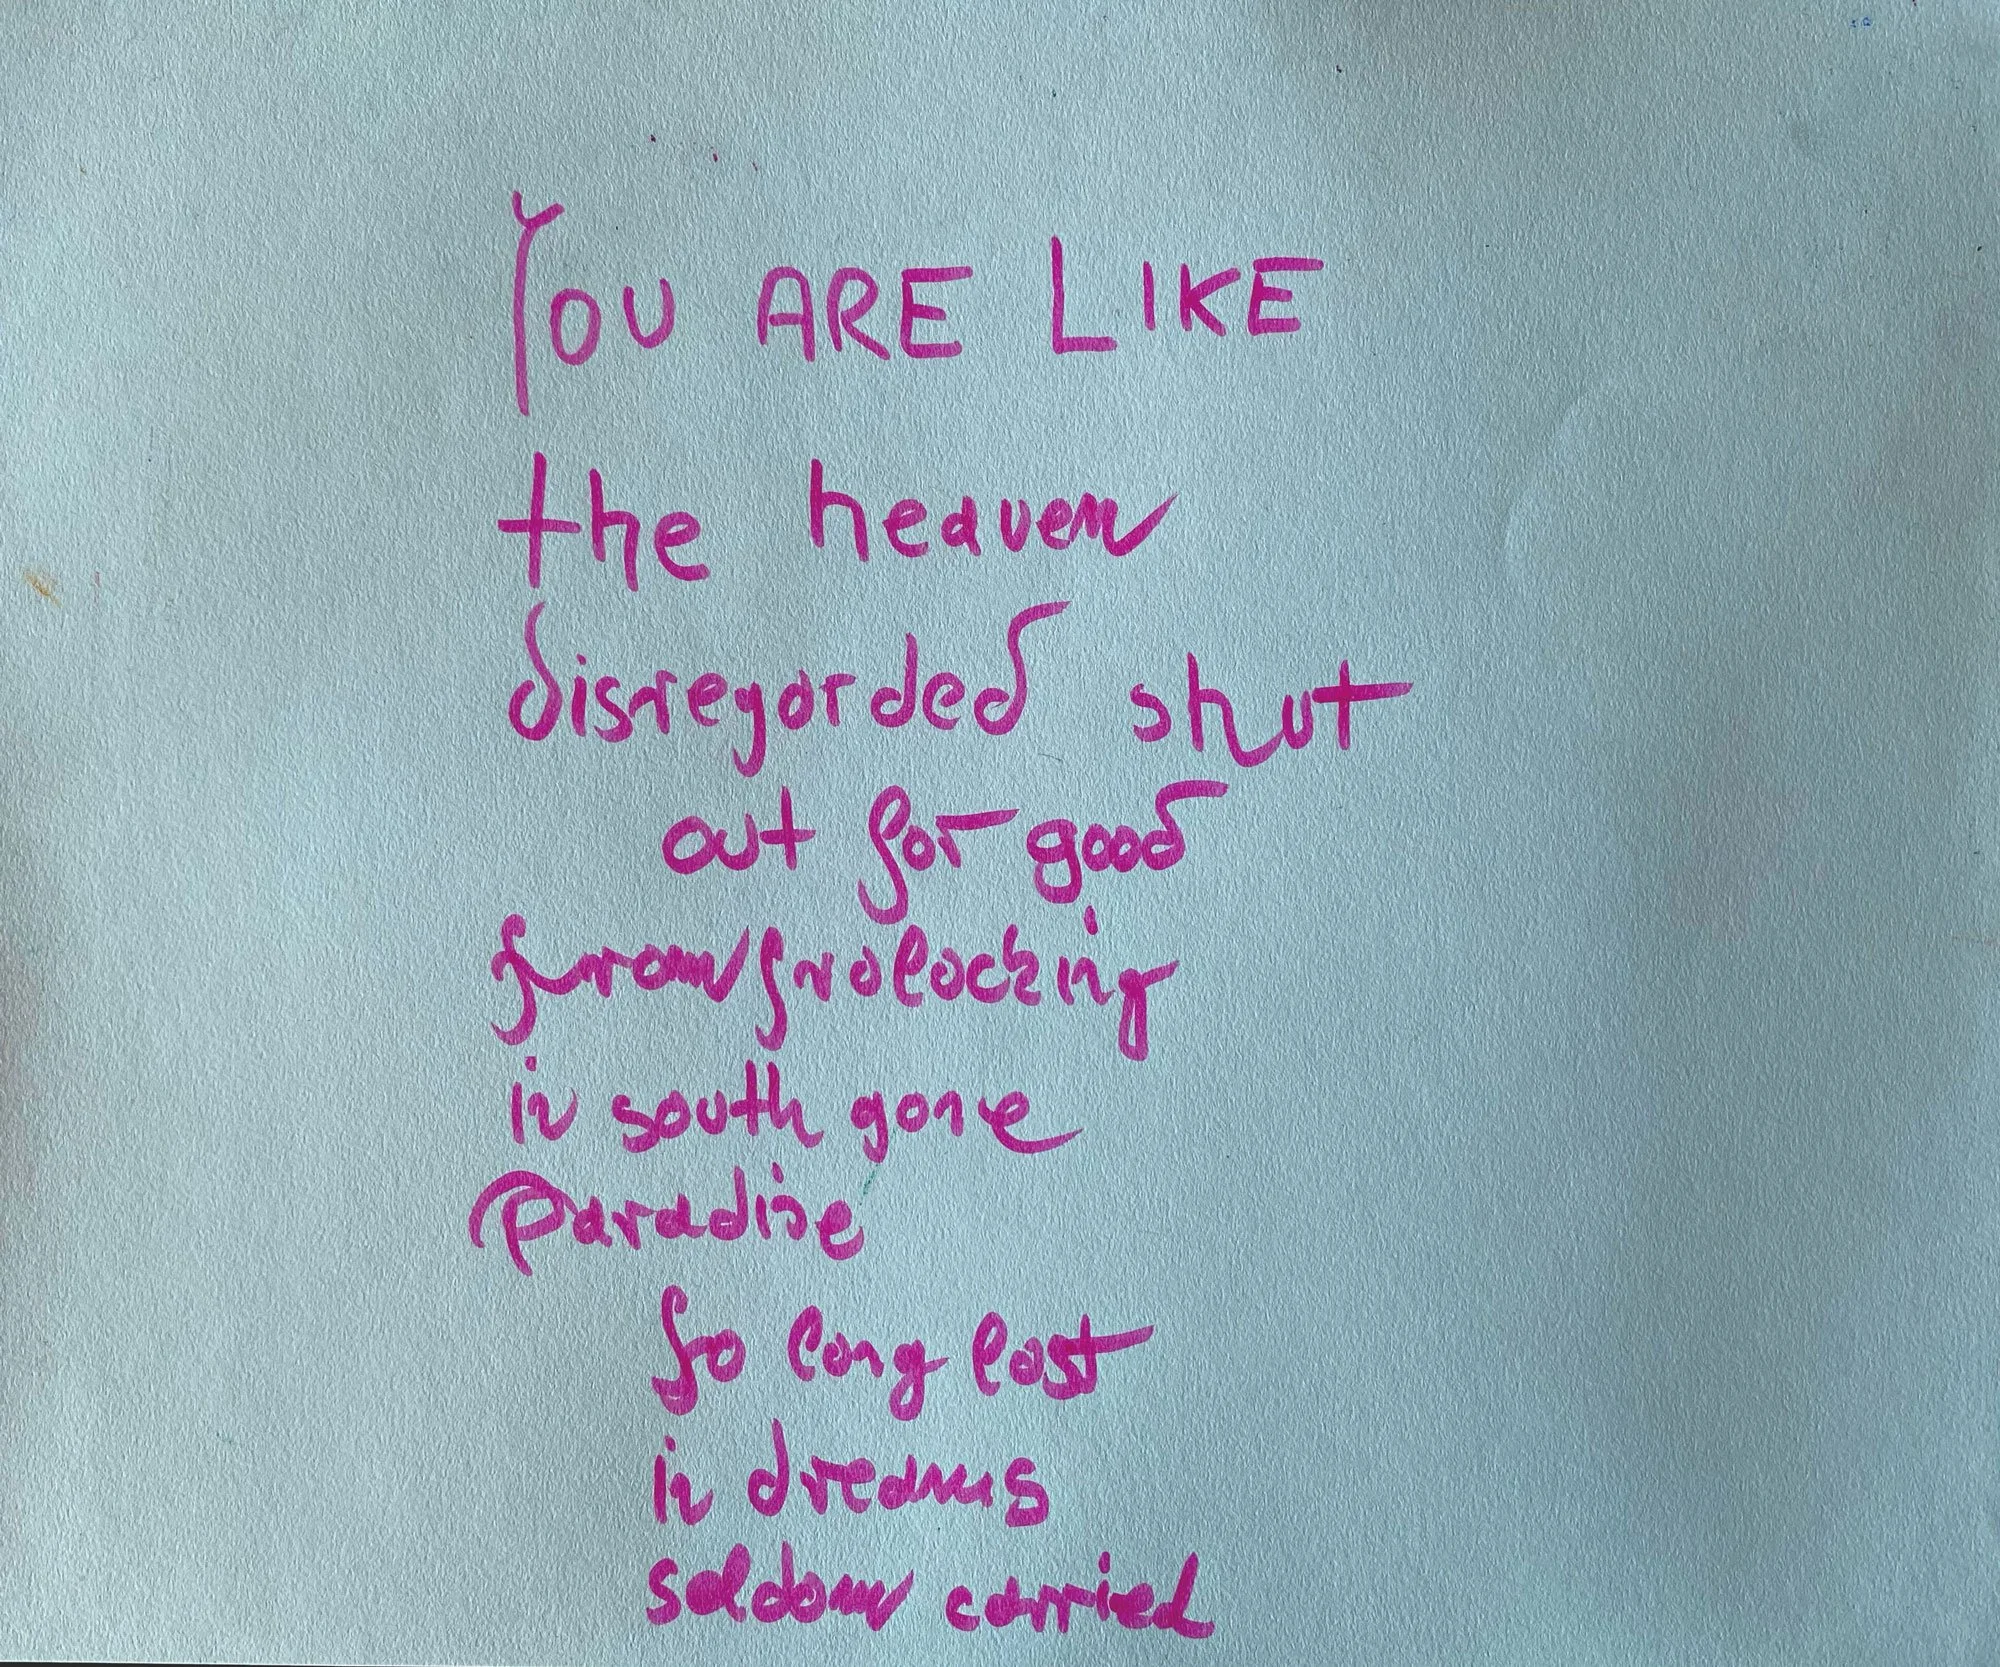 YOU ARE LIKE
the heaven
disregarded shut
out for good
from frolocking
in south gone
paradise
so long lost
in dreams
seldom carried